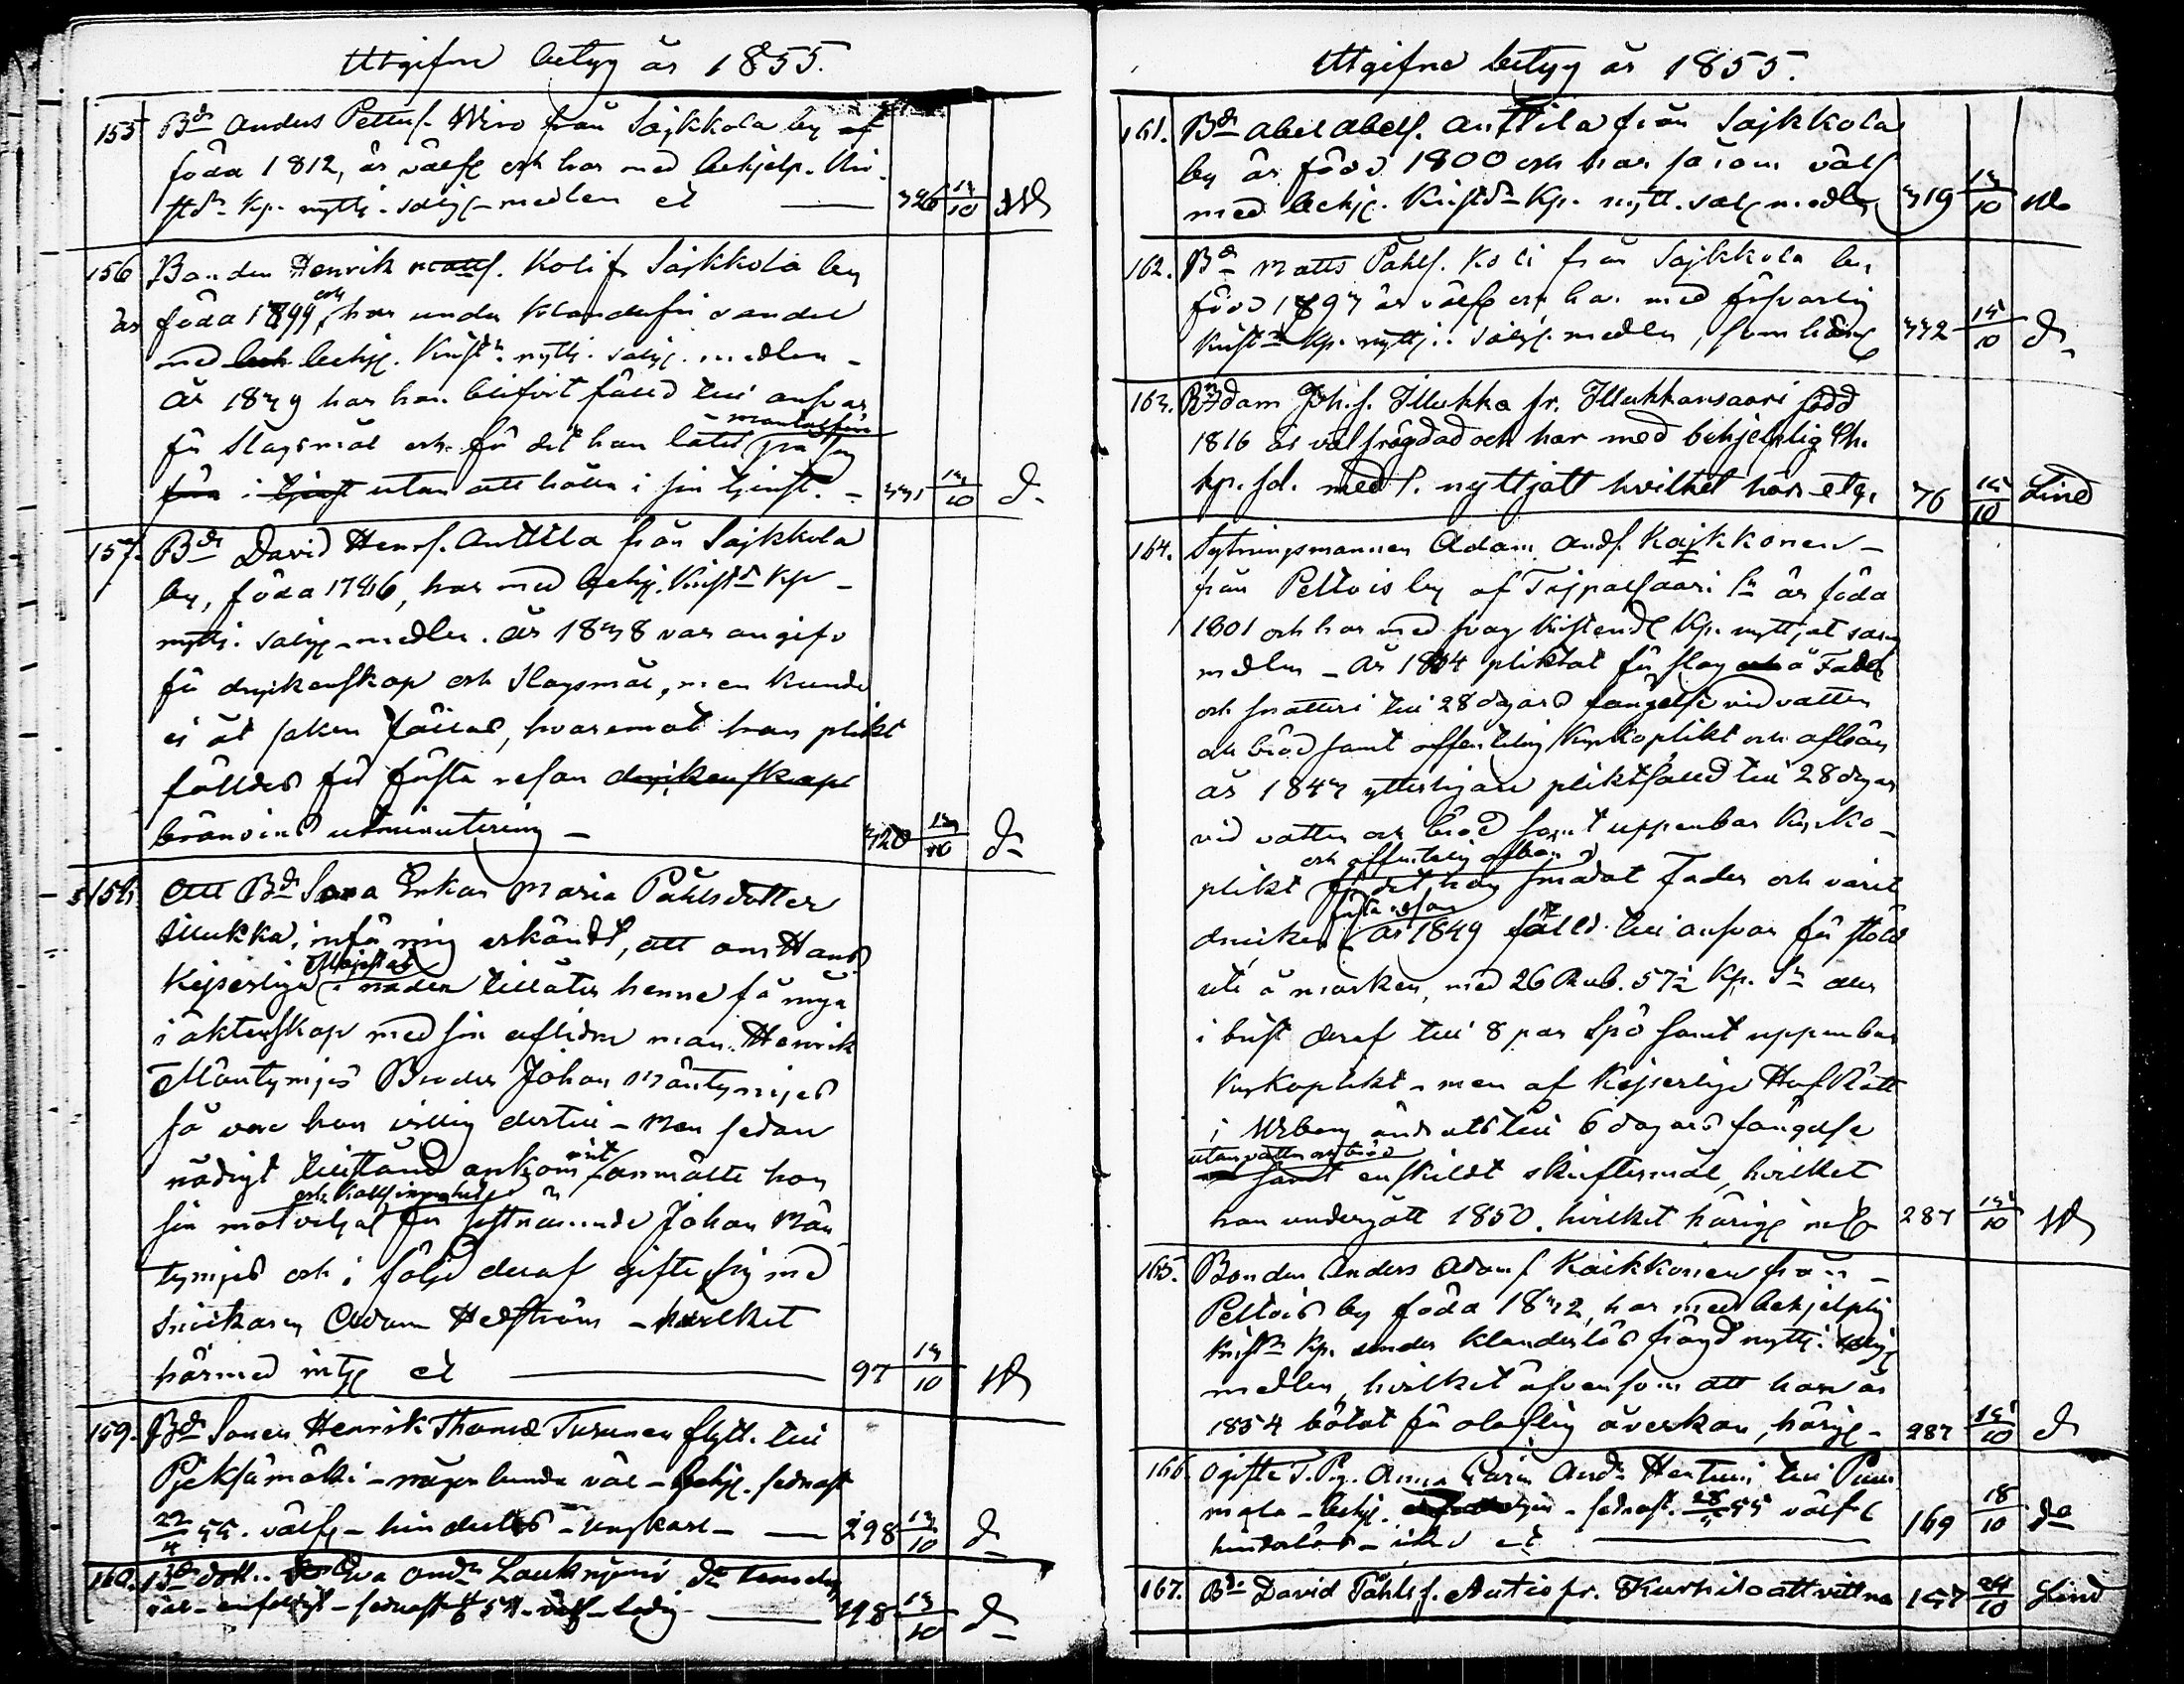 Utgifne betyg år 1855.
155 Bdn Anders Pettersf. Wiro från Sajkkola by
föda 1812, är välfr och har med behjelp. Kri-
stdn kp. nyttj. saligg-medlen et — 326 13/10
156 Bonden Henrik Mattsf. Koli fr Sajkkola by
är föda 1899, och har under klanderfri vandel
med behjg. Kristn nyttj. saligg. medlen -
År 1839 har han blifvit fälld till ansvar
för slagsmål och för det han låtit mantalsföra
på sig
i utan att hålla i sin tjenst. - 331 13/10 dn
157. Bdn David Henrsf. Anttila från Sajkkola
by, föda 1786, har med behj. Kristdn kp -
nyttj. saligg-medlen. År 1838 var angifv
för dryckenskap och slagsmål, men kunde
ej åt saken fällas, hvaremot han plikt
fälldes för första resan dryckenskap
bränvins utminutering - 320 13/10 dn
158 Att Bd Sona Enkan Maria Påhlsdotter
Illukka, inför mig erkändt, att om Hans
Kejserliga Majestät i nåder tillåter henne få ingå
i äktenskap med sin aflidne man Henrik
Mäntynijes Broder Johan Mäntynijes
så vore hon villig dertill - Men sedan
nådigt tillstånd ankommit anmälte hon
sin motvilja och kallsinnighet för sistnämnde Johan Män
tynijes och i följd deraf gifte sig med
Snickaren Adam Hedström - hvilket
härmed intyg et — 97 13/10
159. Bdn Sonen Henrik Thomasf Turunen flytt. till
Pjeksämäki - någorlunda väl - behjg. sednast
22/4 55. välfr - hinderlös - ungkarl - — 298 13/10 dn
160. Bdn dott. Eva Andsdr Laukniemi do
väl - enfaldigt - sednast 54 - välfr - ledig — 298 13/10 dn
Utgifne betyg år 1855.
161. Bdn Abel Abelsf. Anttila från Sajkkola
by är född 1800 och har såsom välf
med behjg. Kristdn kp. nytt. salg medlen 319 13/10
162. Bdn Matts Påhlsf. Koli från Sajkkola by
född 1797 är välfr och har med försvarlig
Kristn kp. nyttj. saligg. medlen, som härmg 332 15/10 dn
163. Bn Adam Joh.s. Illukka fr. Illukkansaari född
1816 är välfrägdad och har med behjelplig Ch.
kp. sal. med l. nyttjatt hvilket här etg. 76 15/10 Lind
164. Sytningsmannen Adam Andsf. Kajkkonen -
från Peltois by af Tajpalsaari sn är föda
1801 och har med svag Kristendl kp. nyttjat salig
medlen - År 1834 pliktat för slag å Fader
och snatteri till 28 dagars fängelse vid vatten
och bröd samt offentlig kyrkoplikt och afbön
år 1847 ytterligare pliktfälld till 28 dagar
vid vatten och bröd samt uppenbar kyrko-
plikt och offentelig afbön för det han smädat Fader och varit
drucken första resan År 1849 fälld till ansvar för stöld
ute å marken, med 26 Rub. 57½ kp. Sr eller
i brist deraf till 8 par spö samt uppenbar
kyrkoplikt - men af Kejserlige Hof Rätt
i Wiborg ändrats till 6 dagars fängelse
utan vatten och bröd
samt enskildt skriftermål, hvilket
han undergått 1850. hvilket härigg 287 15/10
165. Bonden Anders Adamsf Kaikkonen från -
Peltois by föda 1832, har med behjelplig
Kristn kp. under klanderlös frägd nyttj. saligg
medlen, hvilket äfvensom att han år
1854 bötat för olaflig åverkan, härigg - 287 15/10 dn
166. Ogifta T. Pig. Anna Carin Andsdr Hentuni till Puu
mala - behjg. - sednast. 55 välf
hinderlös - et — 169 18/10 do
167. Bdn David Påhlsf. Autio fr. Kurhila att vittna 157 24/10 Lind